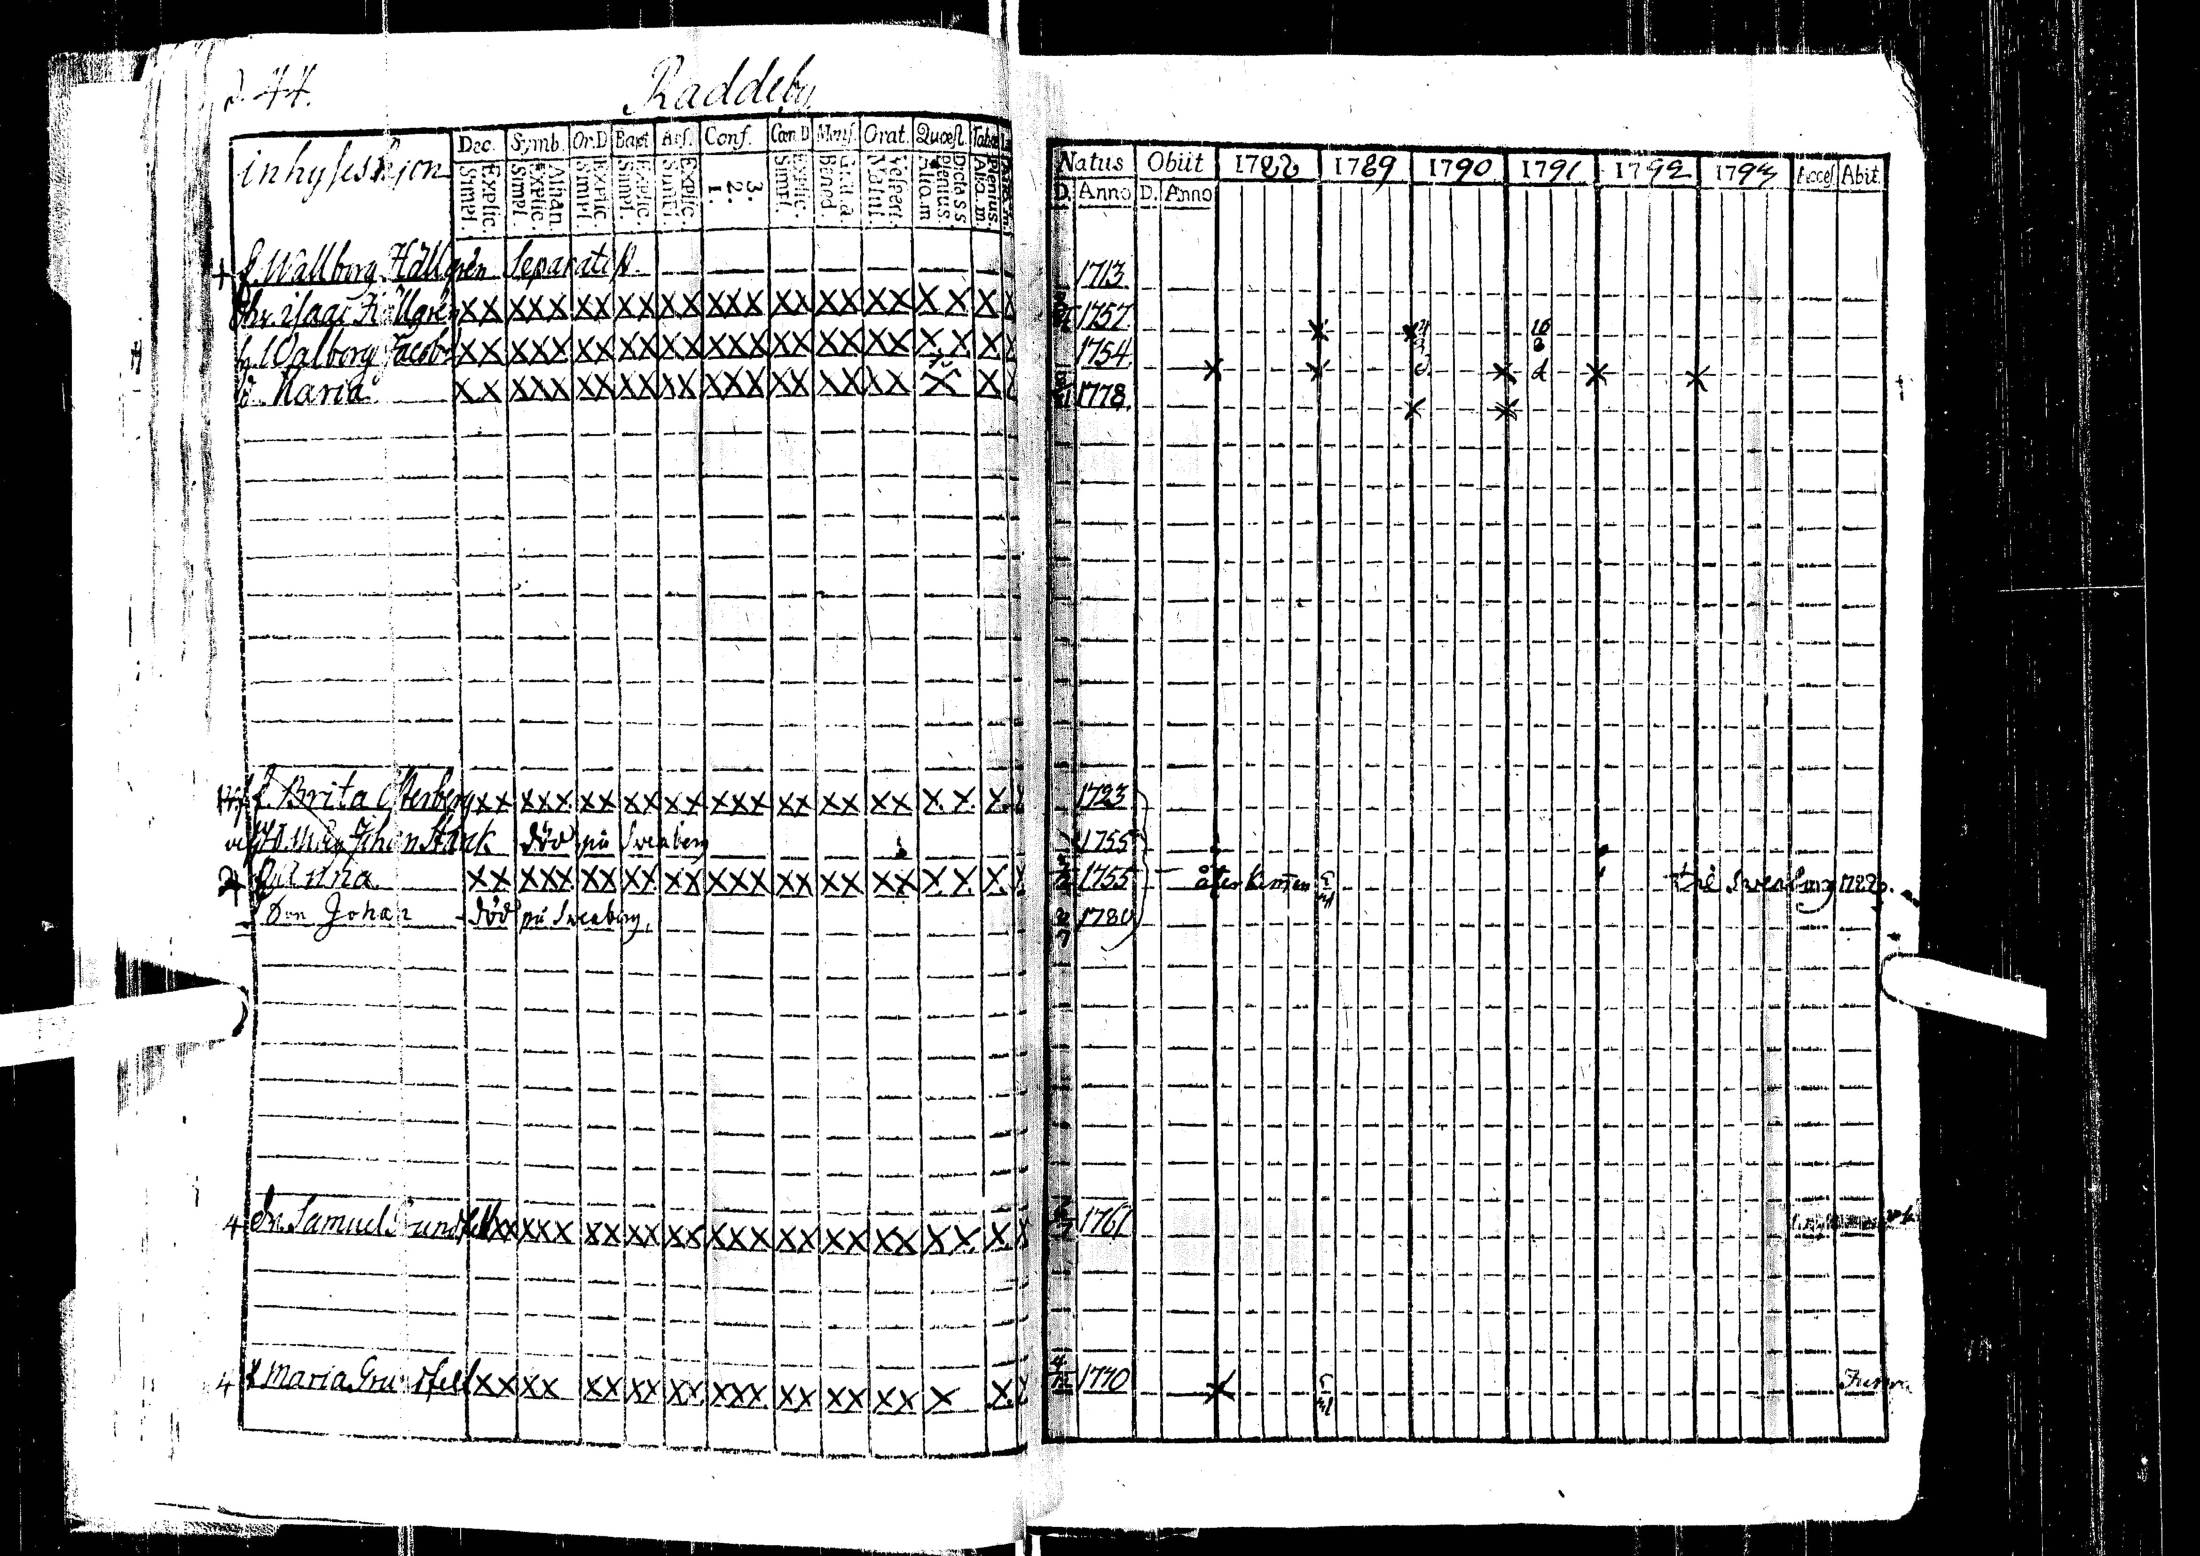 p. 44.
Raddeby
inhyseshjon
Dec. Symb. Or.D Bapt. Abs. Conf. Cœn.D Mens. Orat. Quœst. Tabœ
Simpl. Explic. Simpl. Explic. Athan. Simpl. Explic. Simpl. Explic. Simpl. Explic. 1. 2. 3. Simpl. Explic. Bened. Grat. a. Matut. Vespert. Alto. m Plenius. Dict. s s Alto. m Plenius.
Natus Obiit 1788 1789 1790 1791 1792 1793 Acces. Abit.
D. Anno D. Anno
+ E. Wallborg Hällgrén Separatist 1713.
Chr. Isaac Hällgren XX XXX XX XX XX XXX XX XX XX X X X 1757
h. Walborg Jacobs XX XXX XX XX XX XXX XX XX XX X X X 1754
d. Maria XX XXX XX XX XX XXX XX XX XX X X 1778
E. Brita Österberg XX XXX XX XX XX XXX XX XX XX X. X. X. 1723
Johan Stark död på Sveaborg 1755
Anna XX XXX XX XX XX XXX XX XX XX X. X. X. 1755 återkommen til Sveaborg 1788.
Son Johan död på Sveaborg. 1780
4 Dr. Samuel Grundfelt XX XXX XX XX XX XXX XX XX XX X X. X. 1767
4 Maria Grundfelt XX XX XX XX XX XXX XX XX XX X X. 4/12 1770